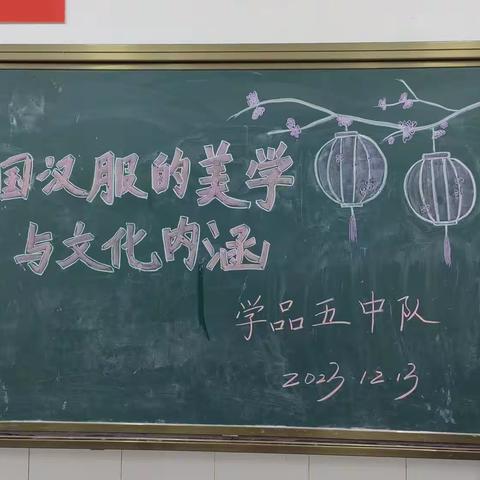 国汉服的美学
与文化内涵
学品五中队
2023.12.13